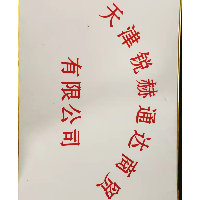 天津锐赫通达商贸
有限公司